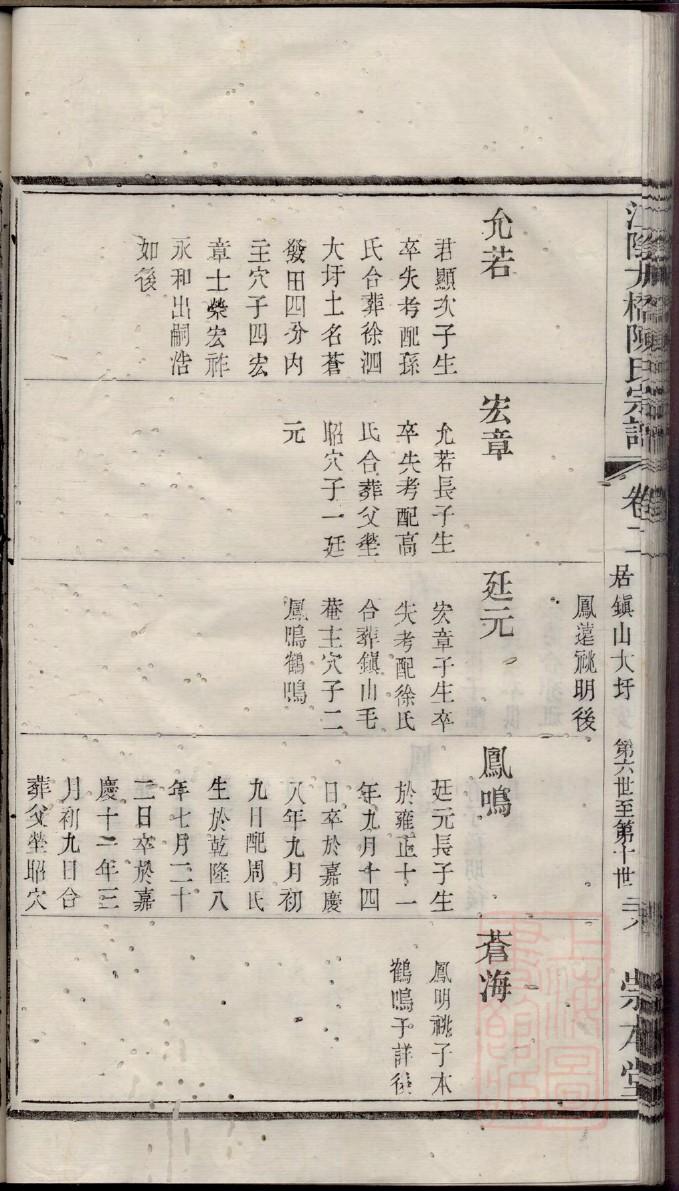 江陰大橋陳氏宗譜
卷二
居鎮山大圩
第六世至第十世
崇本堂
鳳蘧祧明後
允若
君顯次子生
卒失考配孫
氏合葬徐泗
大圩土名蒼
發田四分內
主穴子四宏
章士榮宏祚
永和出嗣浩
如後
宏章
允若長子生
卒失考配高
氏合葬父塋
昭穴子一廷
元
廷元
宏章子生卒
失考配徐氏
合葬鎮山毛
菴主穴子二
鳳鳴鶴鳴
鳳鳴
廷元長子生
於雍正十一
年九月十四
日卒於嘉慶
八年九月初
九日配周氏
生於乾隆八
年七月二十
二日卒於嘉
慶十二年三
月初九日合
葬父塋昭穴
蒼海
鳳明祧子本
鶴鳴子詳後
上海圖書館藏